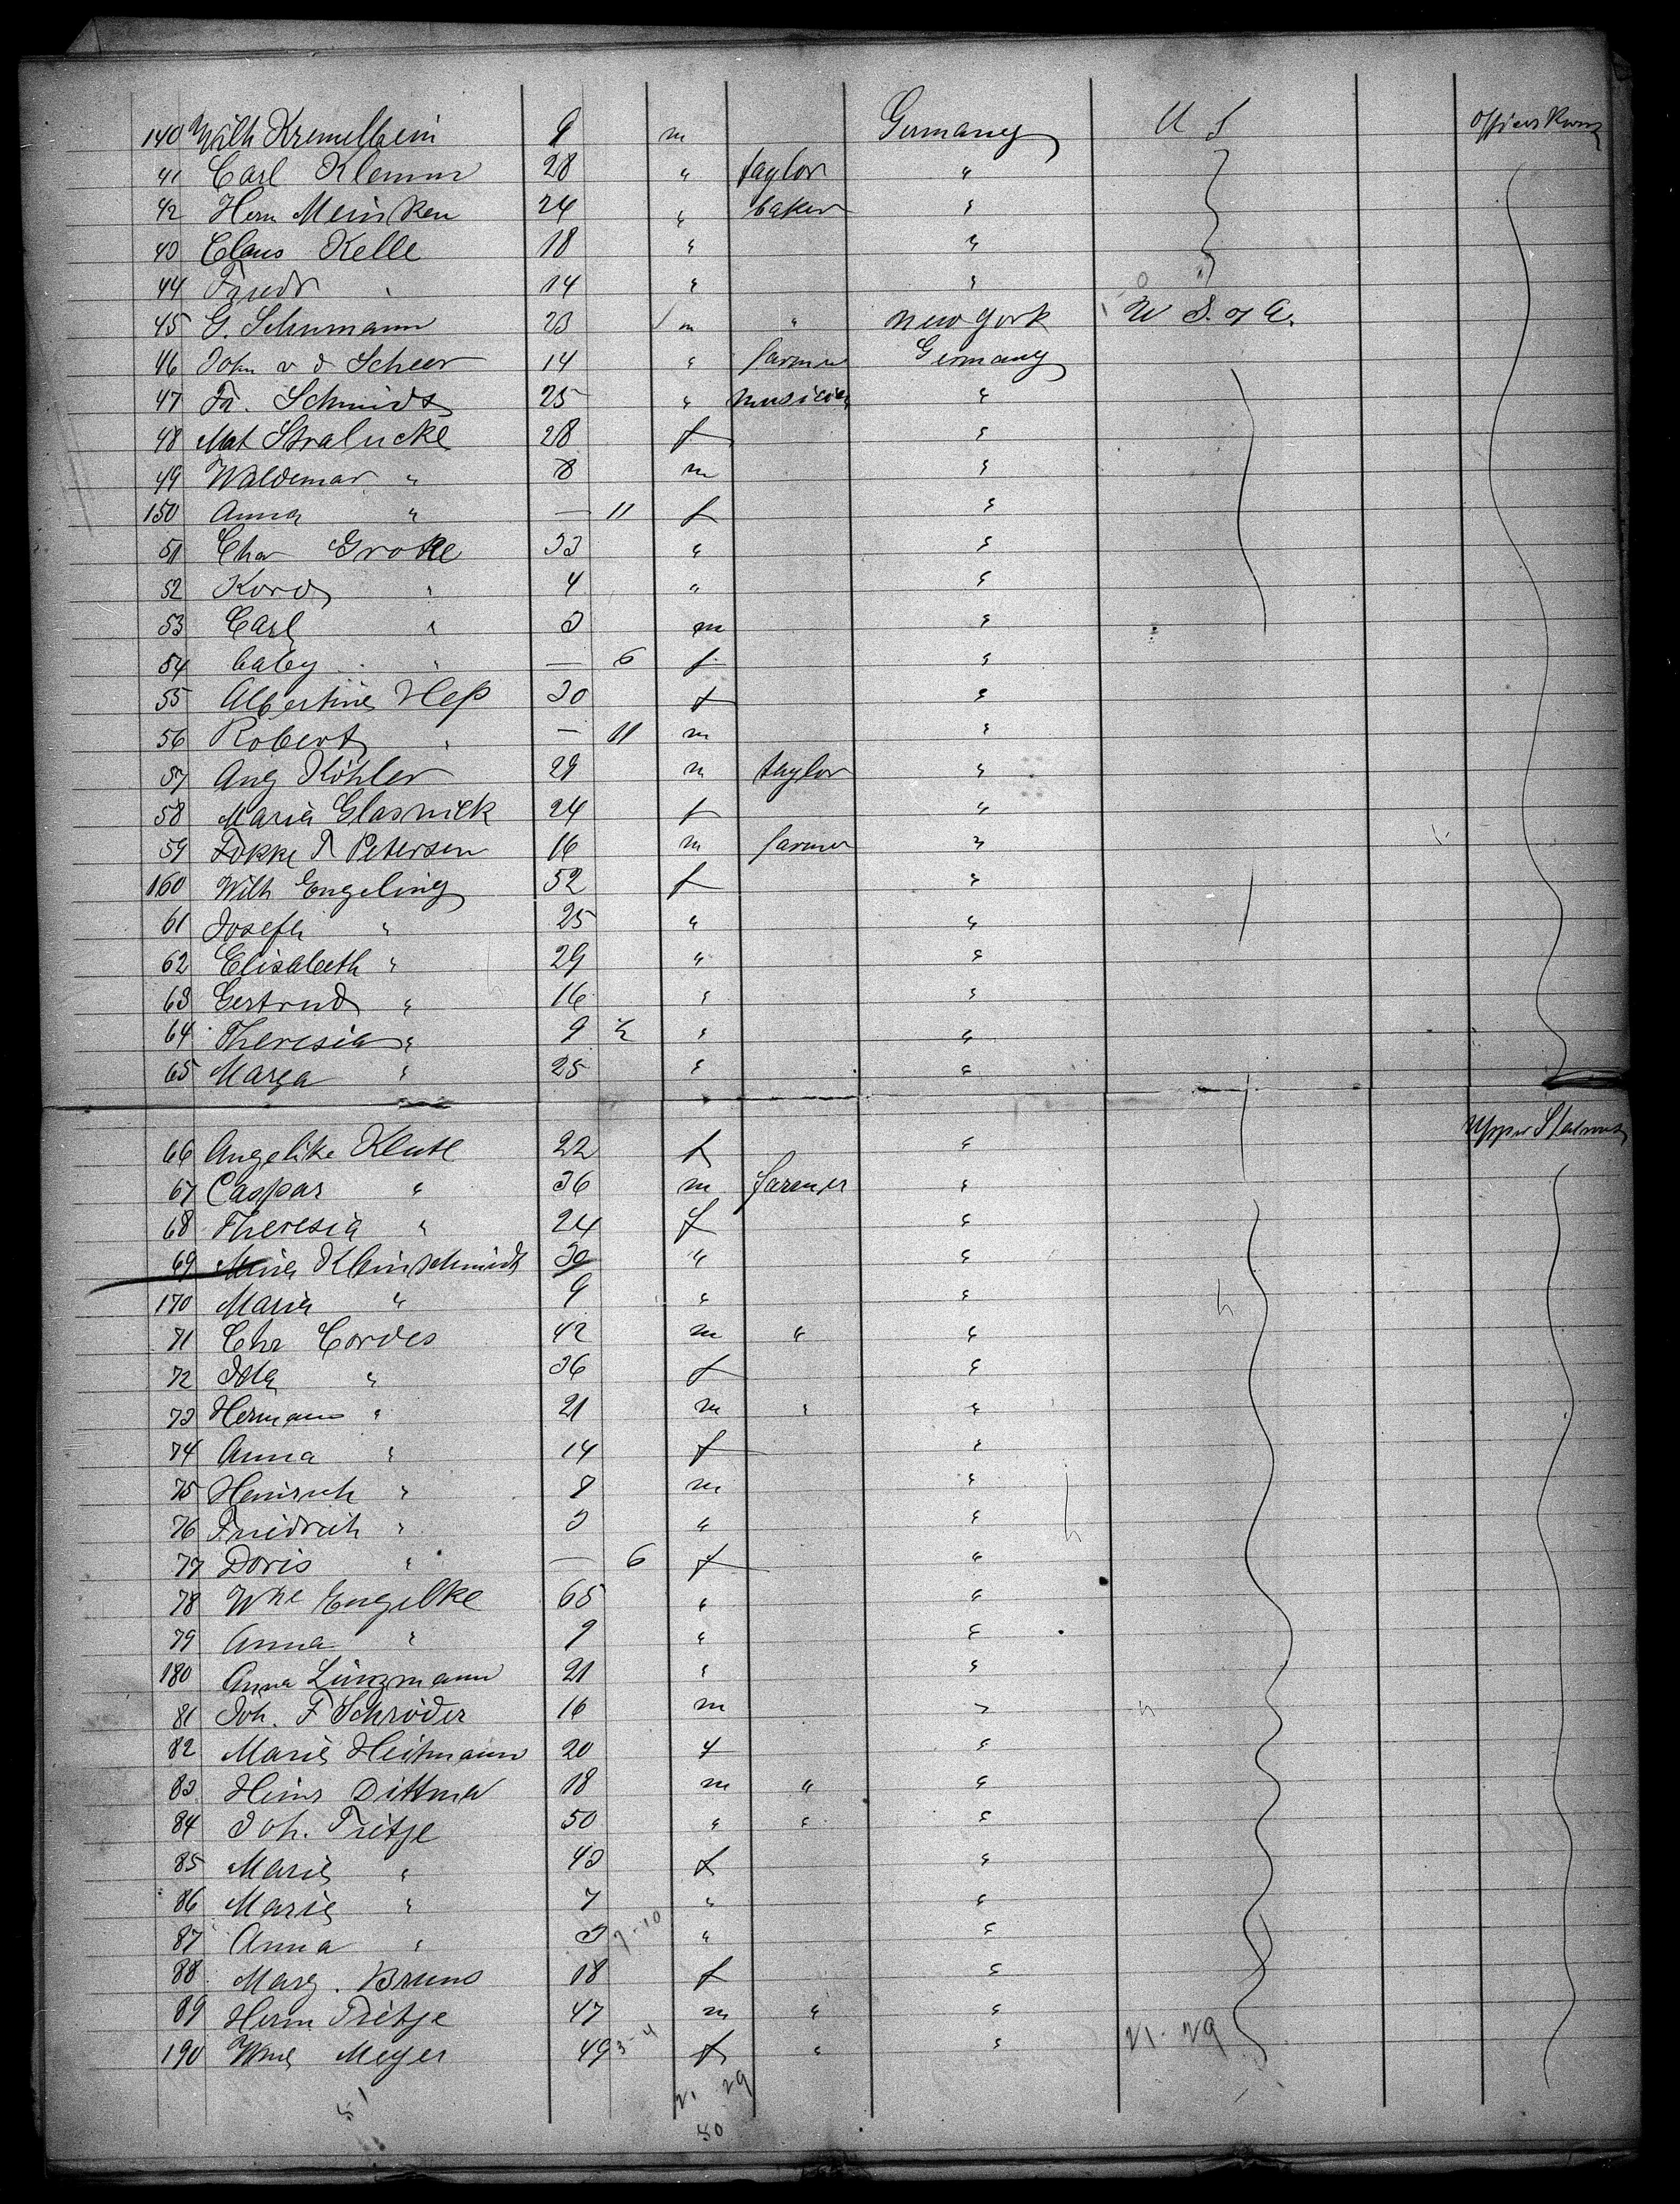 140 Wilh Kremelbein 9 m Germany U S
41 Carl Klemm 28 " taylor "
42 Herm Meinken 24 " baker "
43 Claus Kelle 18 " "
44 Friedr " 14 " "
45 G. Schumann 23 m " New York U S. of A.
46 John v d Scheer 14 " farmer Germany
47 Fr. Schmidt 25 " musician "
48 Mat Stralucke 28 f "
49 Waldemar " 8 m "
150 Anna " — 11 f "
51 Cha Grote 33 " "
52 Kord " 4 " "
53 Carl " 3 m "
54 baby " — 6 f "
55 Albertine Heß 30 f "
56 Robert " — 11 m "
57 Aug Köhler 29 m taylor "
58 Maria Glasnick 24 f "
59 Fokke P Petersen 16 m farmer "
160 Wilh Engeling 52 f "
61 Josefh " 25 " "
62 Elisabeth " 29 " "
63 Gertrud " 16 " "
64 Theresia " 9 " "
65 Marga " 25 " "
Upper Steerage
66 Angelika Klute 22 f "
67 Caspar " 36 m farmer "
68 Theresia " 24 f "
69 Mina Kleinschmidt 30 " "
170 Maria " 9 " "
71 Chr Cordes 42 m " "
72 Ida " 36 f "
73 Hermann " 21 m " "
74 Anna " 14 f "
75 Heinrich " 8 m "
76 Friedrich " 3 " "
77 Doris " — 6 f "
78 Wne Engelke 65 " "
79 Anna " 9 " "
180 Anna Linzmann 21 " "
81 Joh. F Schröder 16 m "
82 Marie Heitmann 20 f "
83 Heinr Dittmer 18 m " "
84 Joh. Tietje 50 " " "
85 Marie " 43 f "
86 Marie " 7 " "
87 Anna " 3 7-10 " "
88 Marg. Bruns 18 f "
89 Herm Tietje 47 m " "
190 Wme Meyer 49 3-4 f " " 21-29
51 21 29
50